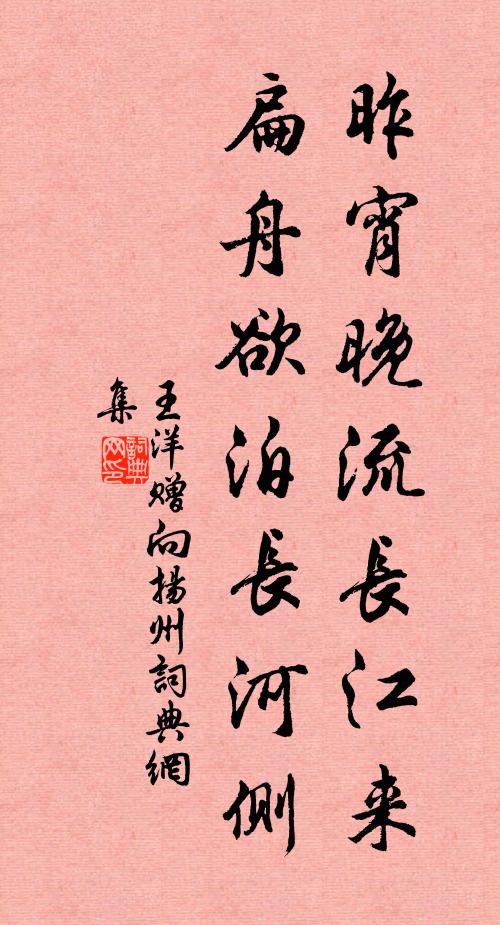 昨宵晚流長江来
扁舟欲泊長河側
王洋贈向揚州詞典網
集
詞典网印